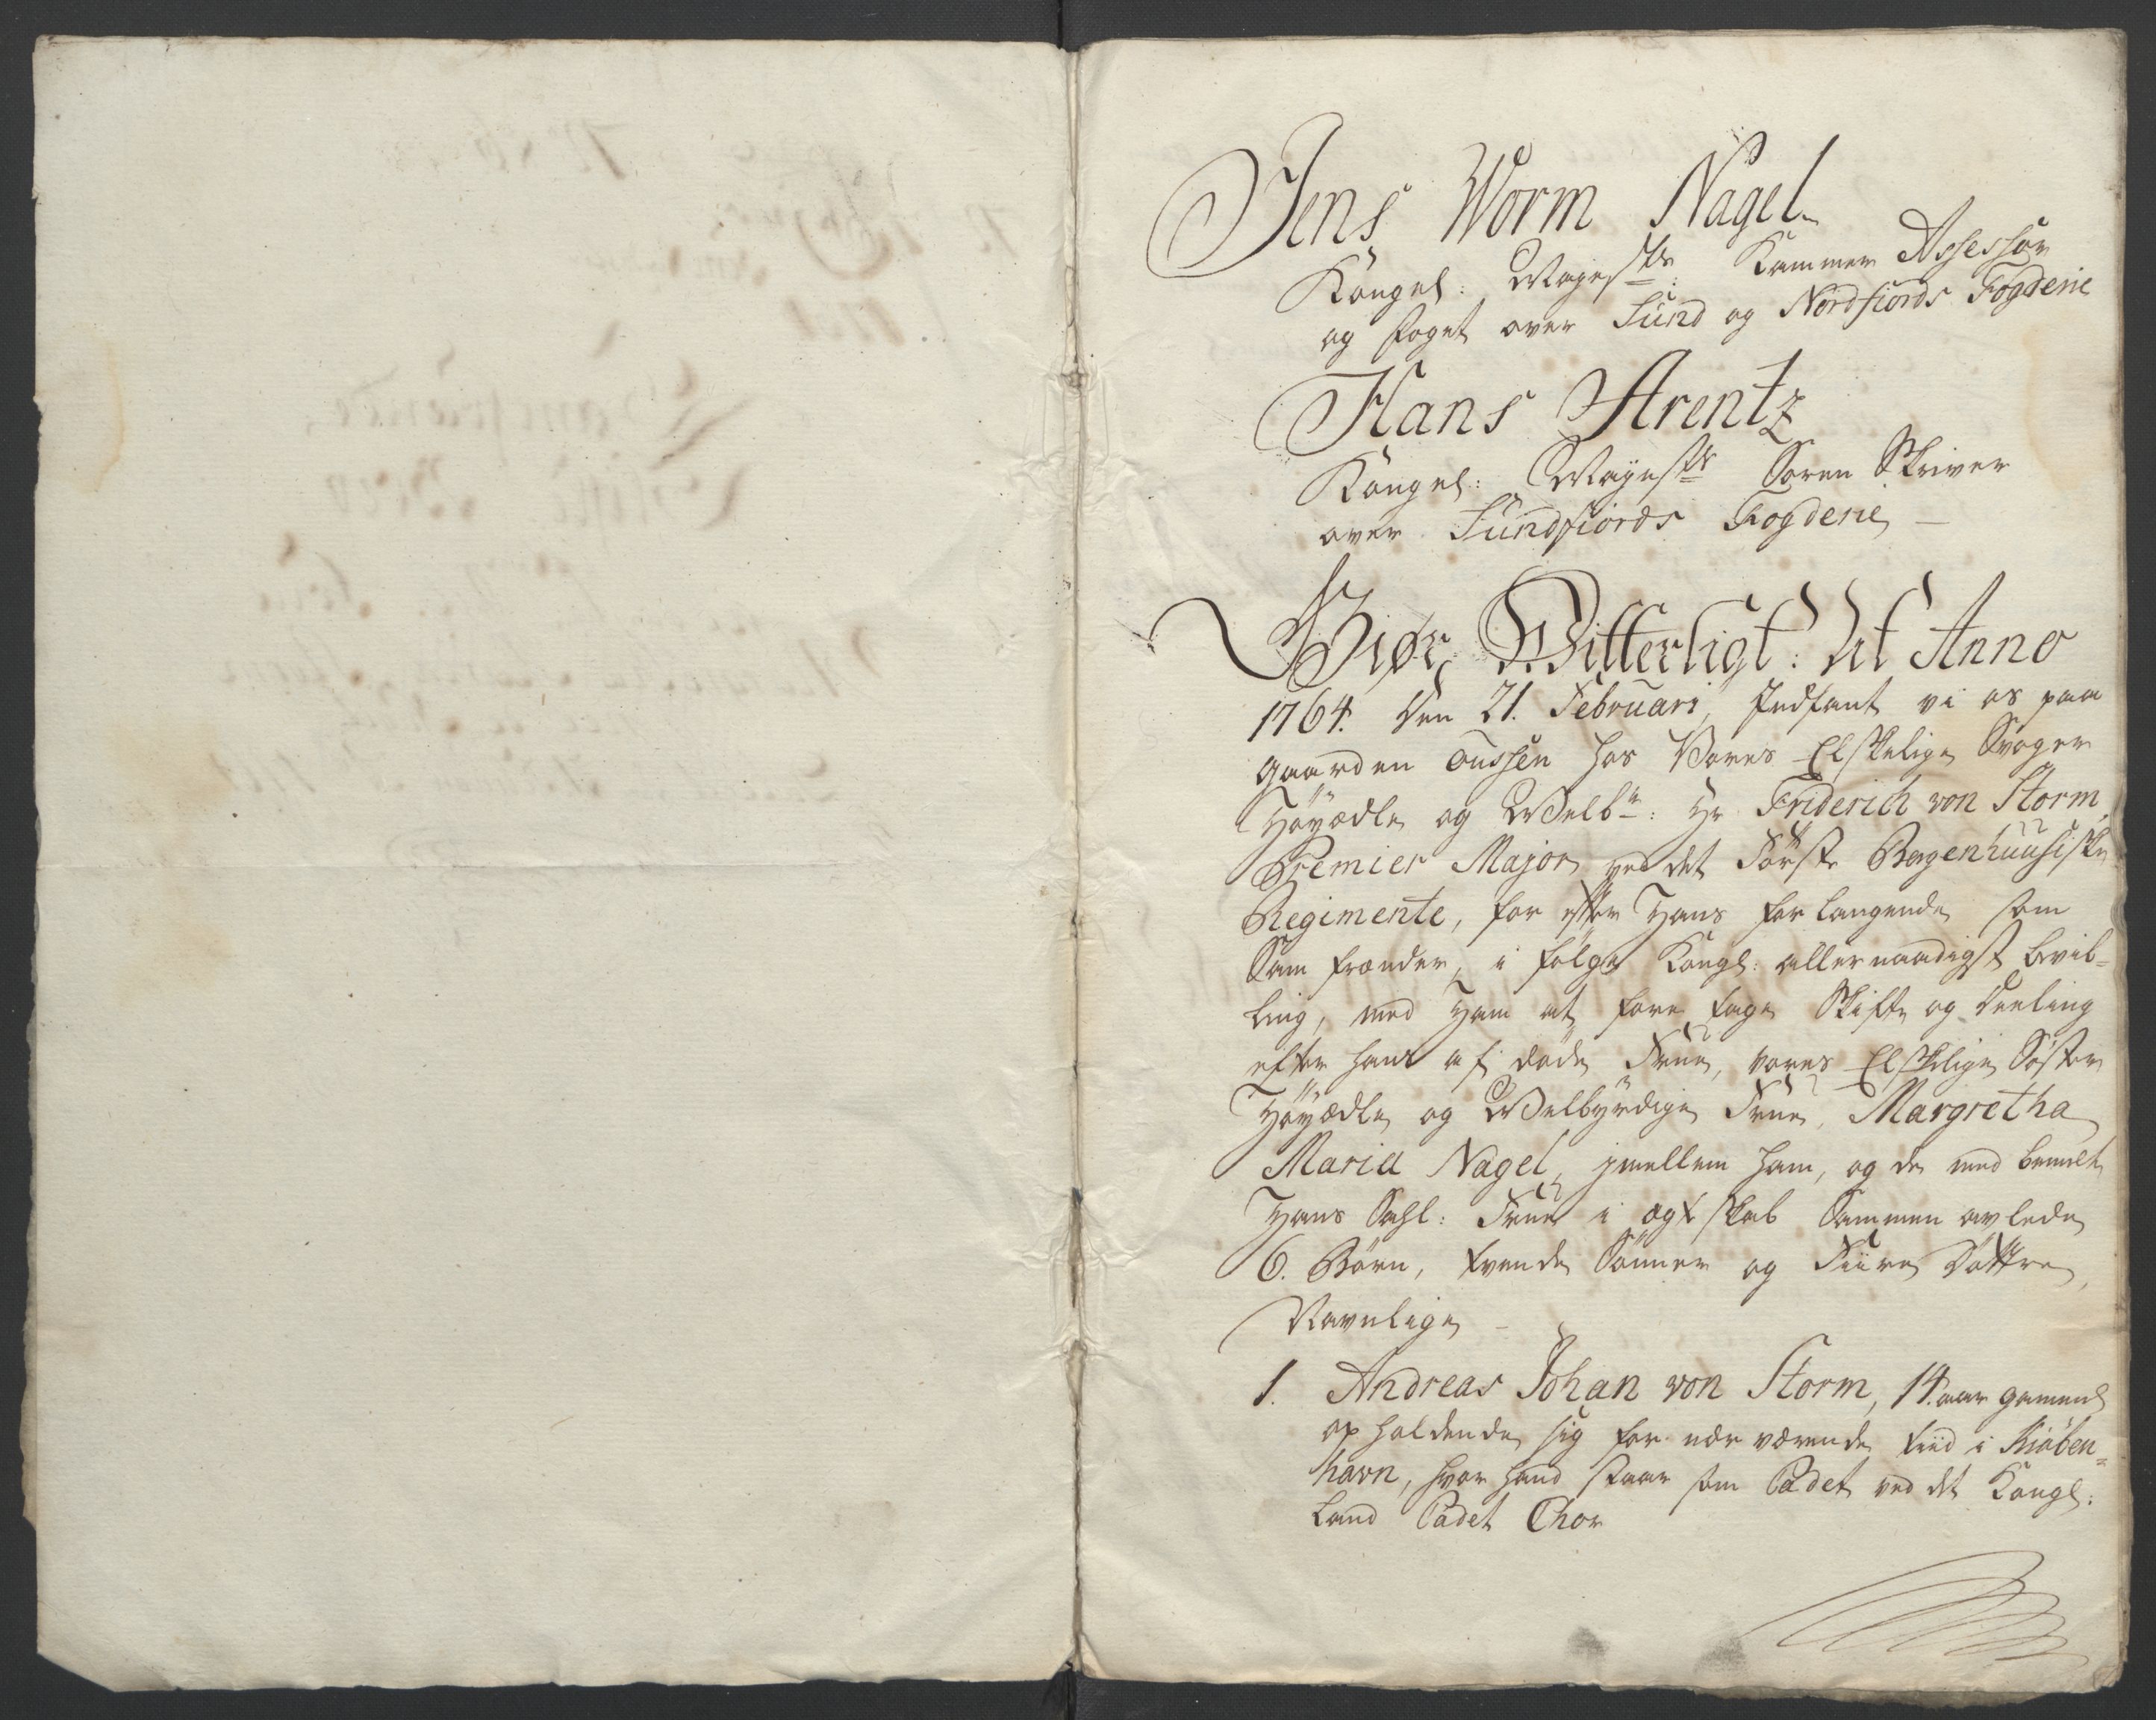 Jens Worm Nagel
Kongel: Mayestts: Kammer Assessor
og foget over Sund og Nordfiords Fogderie
Hans Arentz
Kongel: Mayestts Soren Skriver
over Sundfiords Fogderie
Giør Witterligt: At Anno
1764. den 21. Februari, Indfant vi os paa
gaarden Tussen hos Vores Elskelige Svoger
Høyædle og Welbne: Hr Friderich von Storm,
Premier Major ved det Første Bergenhuusiske
Regimente, for efter Hans forlangende som
Sam frænder, i følge Kongl: allernaadigst bevil-
ling, med Ham at foretage Skifte og deeling
efter hans af døde Frue, vores Elskelige Søster
Høyædle og Welbyrdige Frue, Margretha
Maria Nagel, imellem ham, og de med bemelte
Hans Sahl: Frue i ægteskab Sammen avlede
6. Børn, tvende Sønner og Fiire Døttre,
Navnlige
1. Andreas Johan von Storm, 14. aar gammel
op holdende sig for nærværende tiid i Kiøben-
havn, hvor hand staar som Cadet ved det Kongl:
Land Cadet Chor